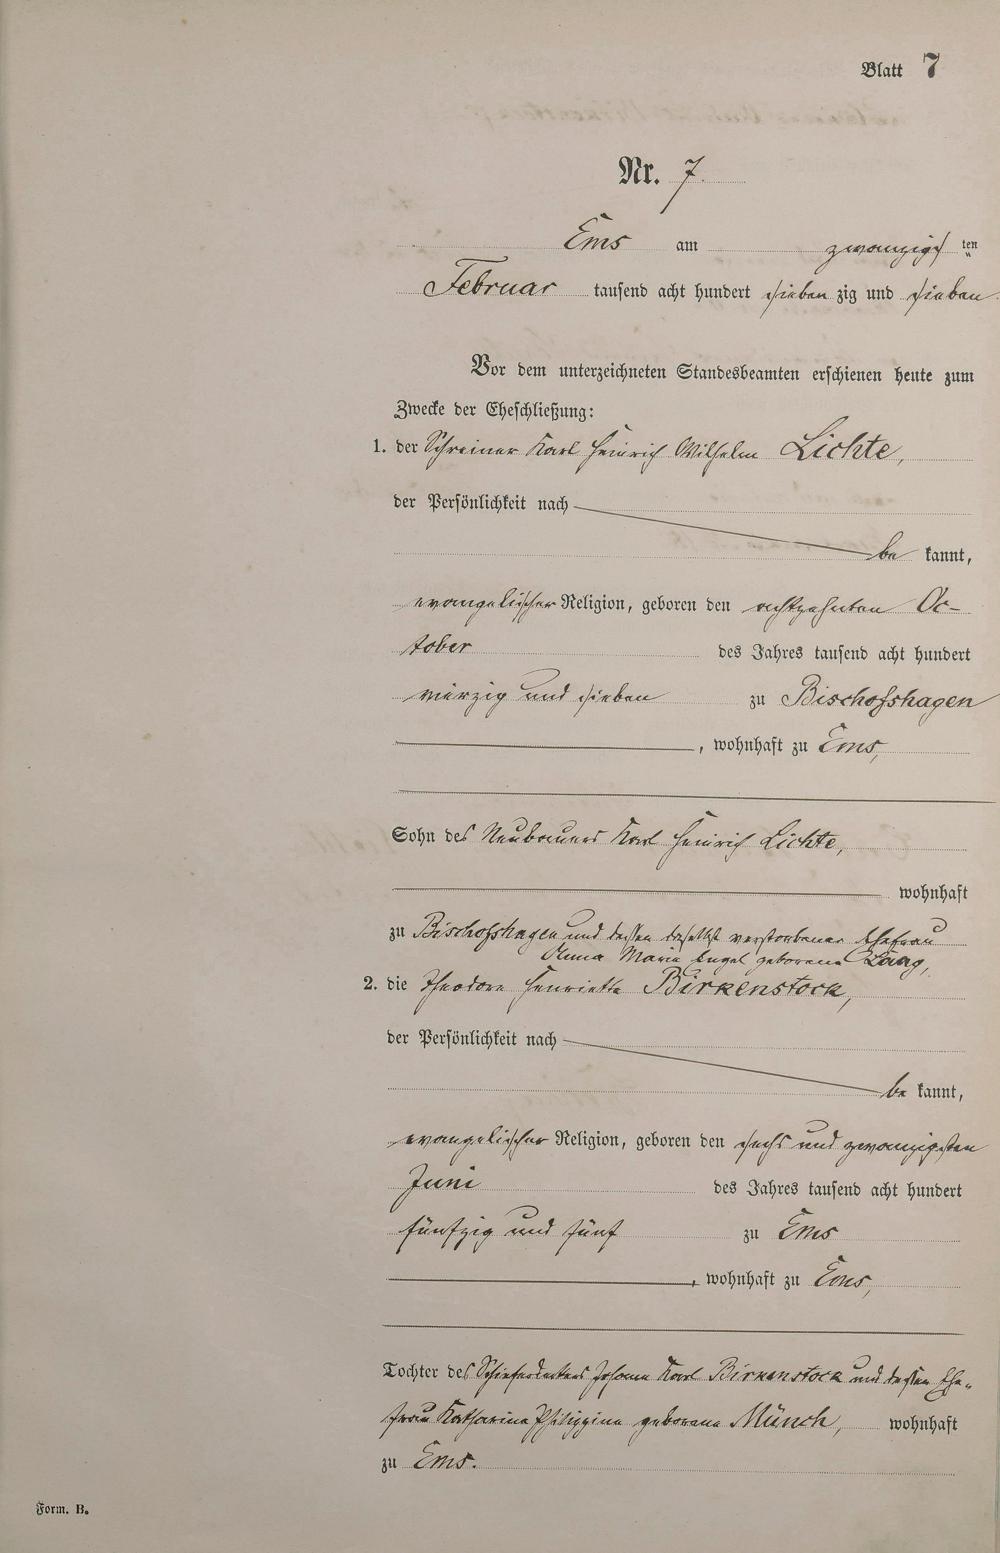 Blatt 7
Nr. 7.
Ems am zwanzigsten
Februar tausend acht hundert siebenzig und sieben
Vor dem unterzeichneten Standesbeamten erschienen heute zum
Zwecke der Eheschließung:
1. der Schreiner Karl Heinrich Wilhelm Lichte,
der Persönlichkeit nach
bekannt,
evangelischer Religion, geboren den achtzehnten Oc-
tober des Jahres tausend acht hundert
vierzig und sieben zu Bischofshagen
, wohnhaft zu Ems,
Sohn des Neubauers Karl Heinrich Lichte,
wohnhaft
zu Bischofshagen und dessen daselbst verstorbener Ehefrau
Anna Maria Engel geborene Laag,
2. die Theodore Henriette Birkenstock,
der Persönlichkeit nach
bekannt,
evangelischer Religion, geboren den sechs und zwanzigsten
Juni des Jahres tausend acht hundert
fünfzig und fünf zu Ems
, wohnhaft zu Ems,
Tochter des Schieferdeckers Johann Karl Birkenstock und dessen Ehe-
frau Katharina Philippine geborene Münch, wohnhaft
zu Ems.
Form. B.